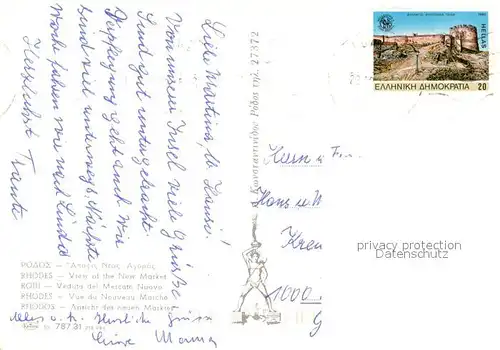 Liebe Martina, lb. Hansi!
Von unserer Insel viele Grüsse
Sind gut untergebracht.
Verpflegung geht auch. Wir
sind viel unterwegs. Nächste
Woche fahren wir nach Lindos
Herzlichst Traute
ΡΟΔΟΣ – Άποψη Νέας Αγοράς
RHODES – View of the New Market
RODI – Veduta del Mercato Nuovo
RHODES – Vue du Nouveau Marché
RHODOS – Ansicht des neuen Marktes
787 31
Alles o.k. Herzliche Grüsse
Mama
Κωνσταντινίδης Ρόδος τηλ. 27372
HELLAS
ΕΛΛΗΝΙΚΗ ΔΗΜΟΚΡΑΤΙΑ 20
Herrn u. Fr.
Hans u. M
1000
privacy protection
Datenschutz